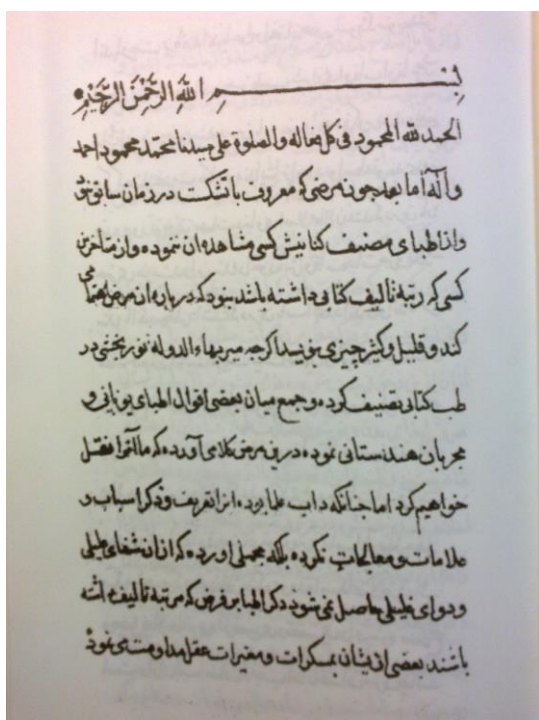 بسم الله الرَّحْمٰنِ الرَّحِيْمِ
الحمد لله المحمود فى كل فعاله والصلوة على سيدنا محمد محمود احمد
وآله اما بعد چون مرضى كه معروف باتشكت در زمان سابق نبوده
واز اطباى مصنف كتابيش كسى مشاهده ان ننموده واز متاخرين
كسى كه رتبه تاليف كتابى داشته باشد نبود كه درباره ان مرض اهتمامى
كند و قليل وكثير چيزى بنويسد اكرچه مير بهاء الدوله نوربخشى در
طب كتابى تصنيف كرده وجمع ميان بعضى اقوال اطباى يونانى و
مجربان هندستانى نموده درين مرض كلامى آورده كه ما آنرا نقل
خواهيم كرد اما چنانكه داب علما بوده از تعريف وذكر اسباب و
علامات و معالجات نكرده بلكه مجملى اورده كه ازان شفاى عليلى
ودواى غليلى حاصل نمى شود ديكر اطبا بر فرض كه مرتبه تاليف داشته
باشند بعضى ازيشان بمسكرات ومغيرات عقل مداومت مى نمود